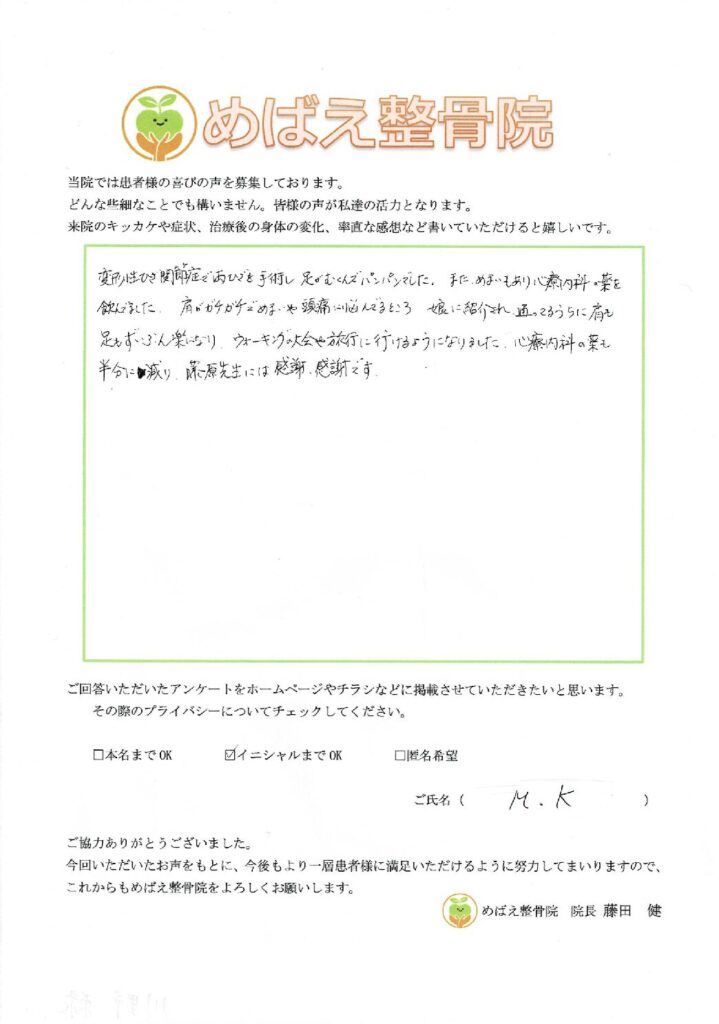 めばえ整骨院
当院では患者様の喜びの声を募集しております。
どんな些細なことでも構いません。皆様の声が私達の活力となります。
来院のキッカケや症状、治療後の身体の変化、率直な感想など書いていただけると嬉しいです。
変形性ひざ関節症で両ひざを手術し足がむくんでパンパンでした。また、めまいもあり心療内科の薬を
飲んでました。肩がガチガチでめまいや頭痛に悩んでるところ 娘に紹介され、通ってるうちに肩も
足もずいぶん楽になり、ウォーキングの大会や旅行に行けるようになりました。心療内科の薬も
半分に減り、藤原先生には感謝、感謝です。
ご回答いただいたアンケートをホームページやチラシなどに掲載させていただきたいと思います。
その際のプライバシーについてチェックしてください。
□本名までOK ☑イニシャルまでOK □匿名希望
ご氏名( M.K )
ご協力ありがとうございました。
今回いただいたお声をもとに、今後もより一層患者様に満足いただけるように努力してまいりますので、
これからもめばえ整骨院をよろしくお願いします。
めばえ整骨院 院長 藤田 健